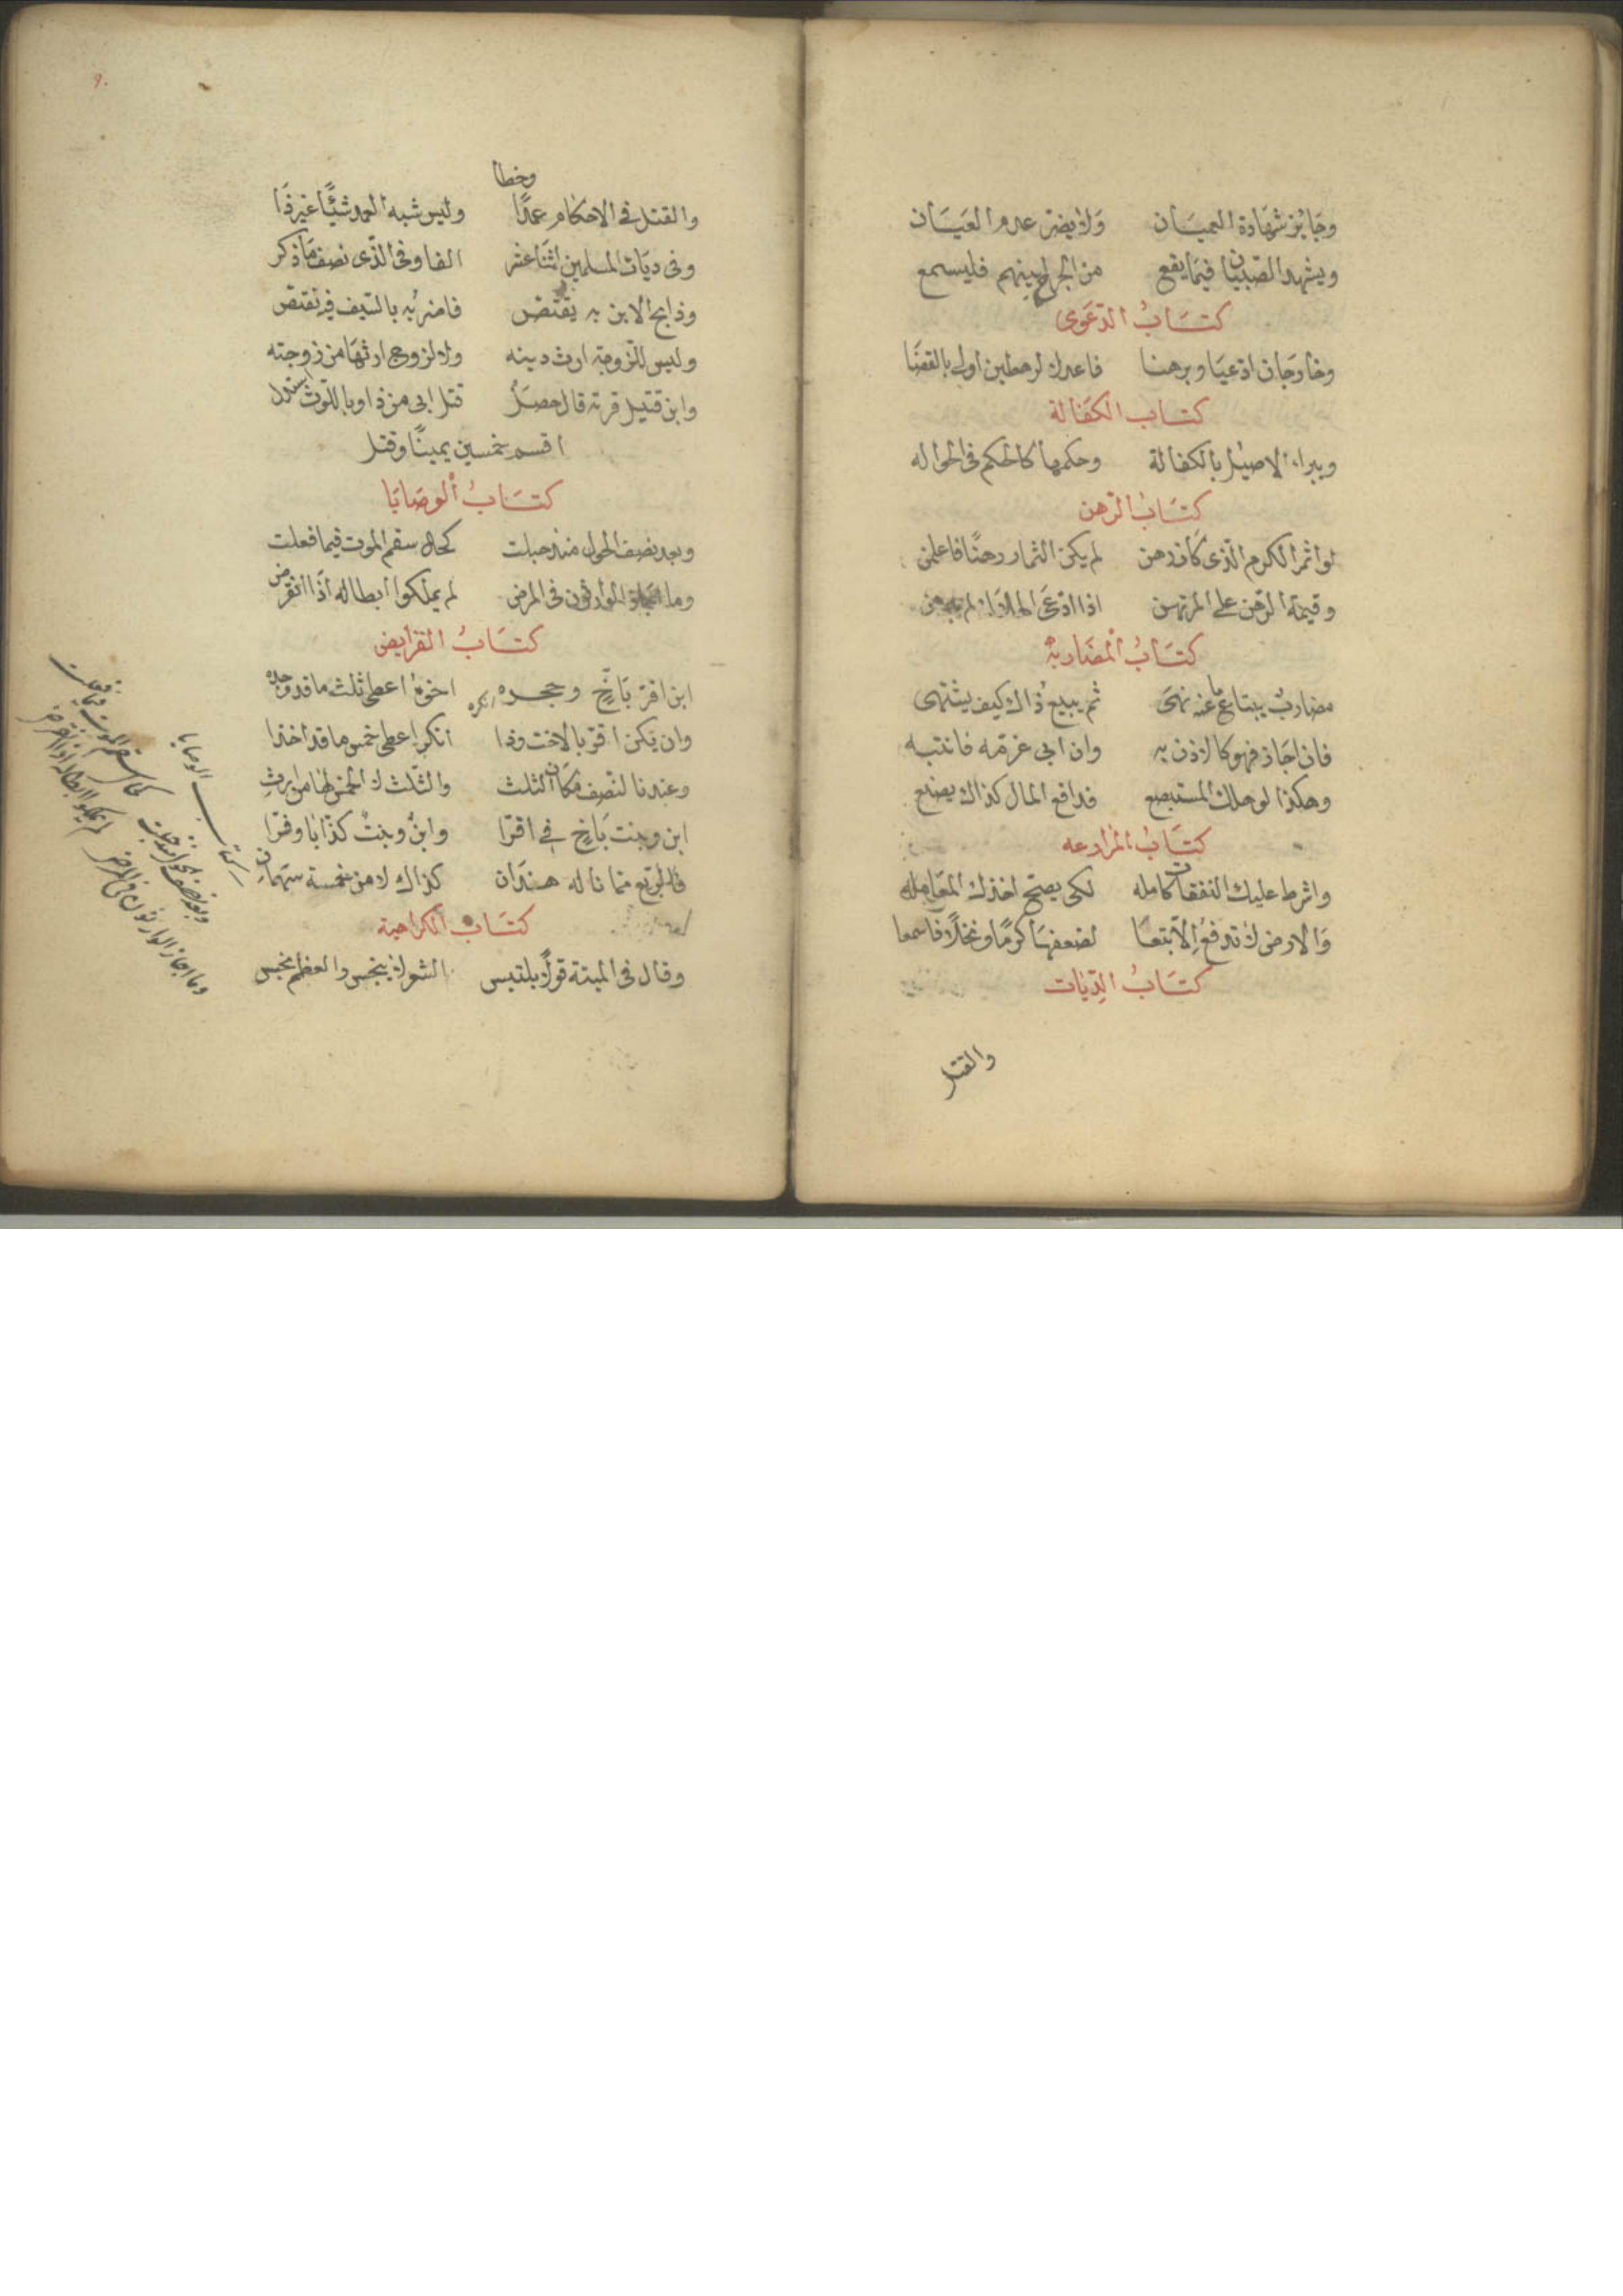 وجايز شهادة العميان ولا يضر عدم العيان
ويشهد الصبيان فيما يقع من الجراح بينهم فليسمع
كتاب الدعوى
وخارجان ادعيا وبرهنا فاعدل بالقضا
كتاب الكفالة
ويبراء الاصيل بالكفالة وحكمها كالحكم في الحواله
كتاب الرهن
لو اثمر الكرم الذي كان رهن لم يكن الثمار رهنا فاعلمن
وقيمة الرهن على المرتهن اذا ادعى الهلاك لم
كتاب المضاربة
مضارب يبتاع ما عنه نهى ثم يبيع ذاك كيف يشتهى
فان اجاز فهو كالاذن به وان ابى غرمه فانتبه
وهكذا لو المستبضع فدافع المال كذاك يصنع
كتاب المزارعه
واشرط عليك النفقات كامله لكي يصح اخذك المعامله
والارض لا تدفع الا تبعا لضعفها كرما ونخلا فاسمعا
كتاب الديات
والقتل
وخطا
والقتل في الاحكام عمدا وليس شبه العمد شيئا غير ذا
وفي ديات المسلمين اثنا عشر الفا وفي الذي نصف ما ذكر
وذابح الابن به يقتص فاضربه بالسيف
وليس للزوجة ارث دينه ولا لزوج ارثها من زوجته
وابن قتيل قال حصل قتل ابي من ذا وباللوث استدل
اقسم خمسين يمينا وقتل
كتاب الوصايا
وبعد نصف الحول منذ حبلت كحال سقم الموت فيما فعلت
وما اجاز الوارثون في المرض لم يملكوا ابطاله اذا انقرض
كتاب الفرايض
ابن اقر باخ وجحده انكره اخوه اعطى ثلث ما قد وجده
وان يكن اقر بالاخت وذا انكر اعطى خمس ما قد اخذا
وعندنا النصف مكان الثلث والثلث لا الخمس لها من ارث
ابن وبنت باخ اقرا وابن وبنت كذابا وفرا
فالربع مما ناله كذاك لا من خمسة سهمان
كتاب الكراهية
وقال في الميتة قولا يلتبس الشعر لا ينجس والعظم نجس
كتاب الوصايا
وبعد نصف الحول منذ حبلت كحال سقم الموت فيما فعلت
وما اجاز الوارثون في المرض لم يملكوا ابطاله اذا انقرض